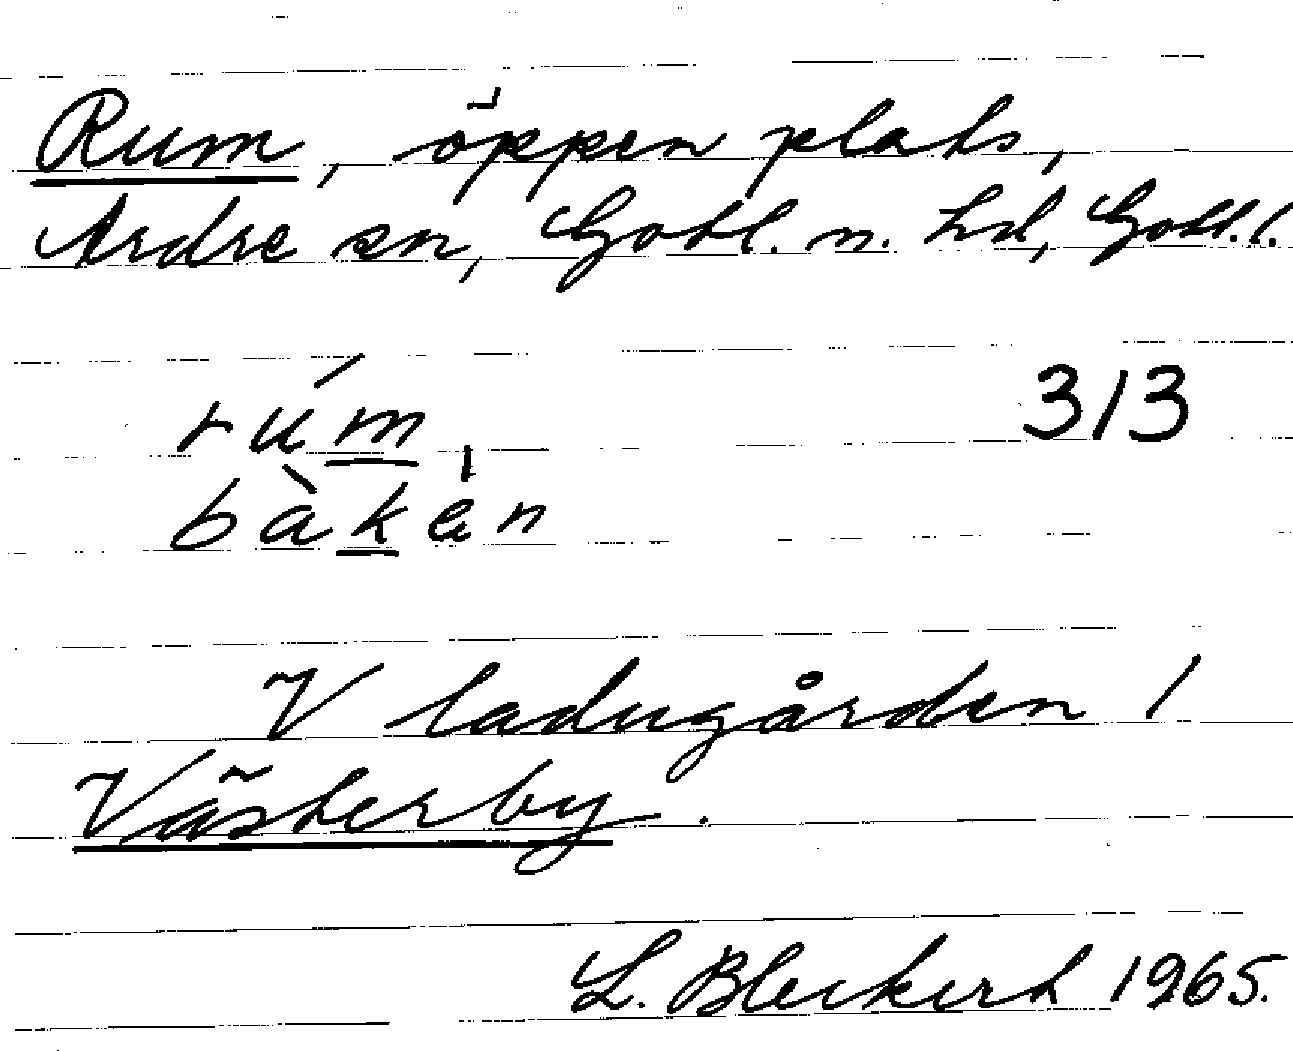 Rum, öppen plats,
Ardre sn, Gotl. n. hd, Gotl. l.
rúm, 313
bàkèn
V ladugården 1
Västerby.
L. Bleckert 1965.